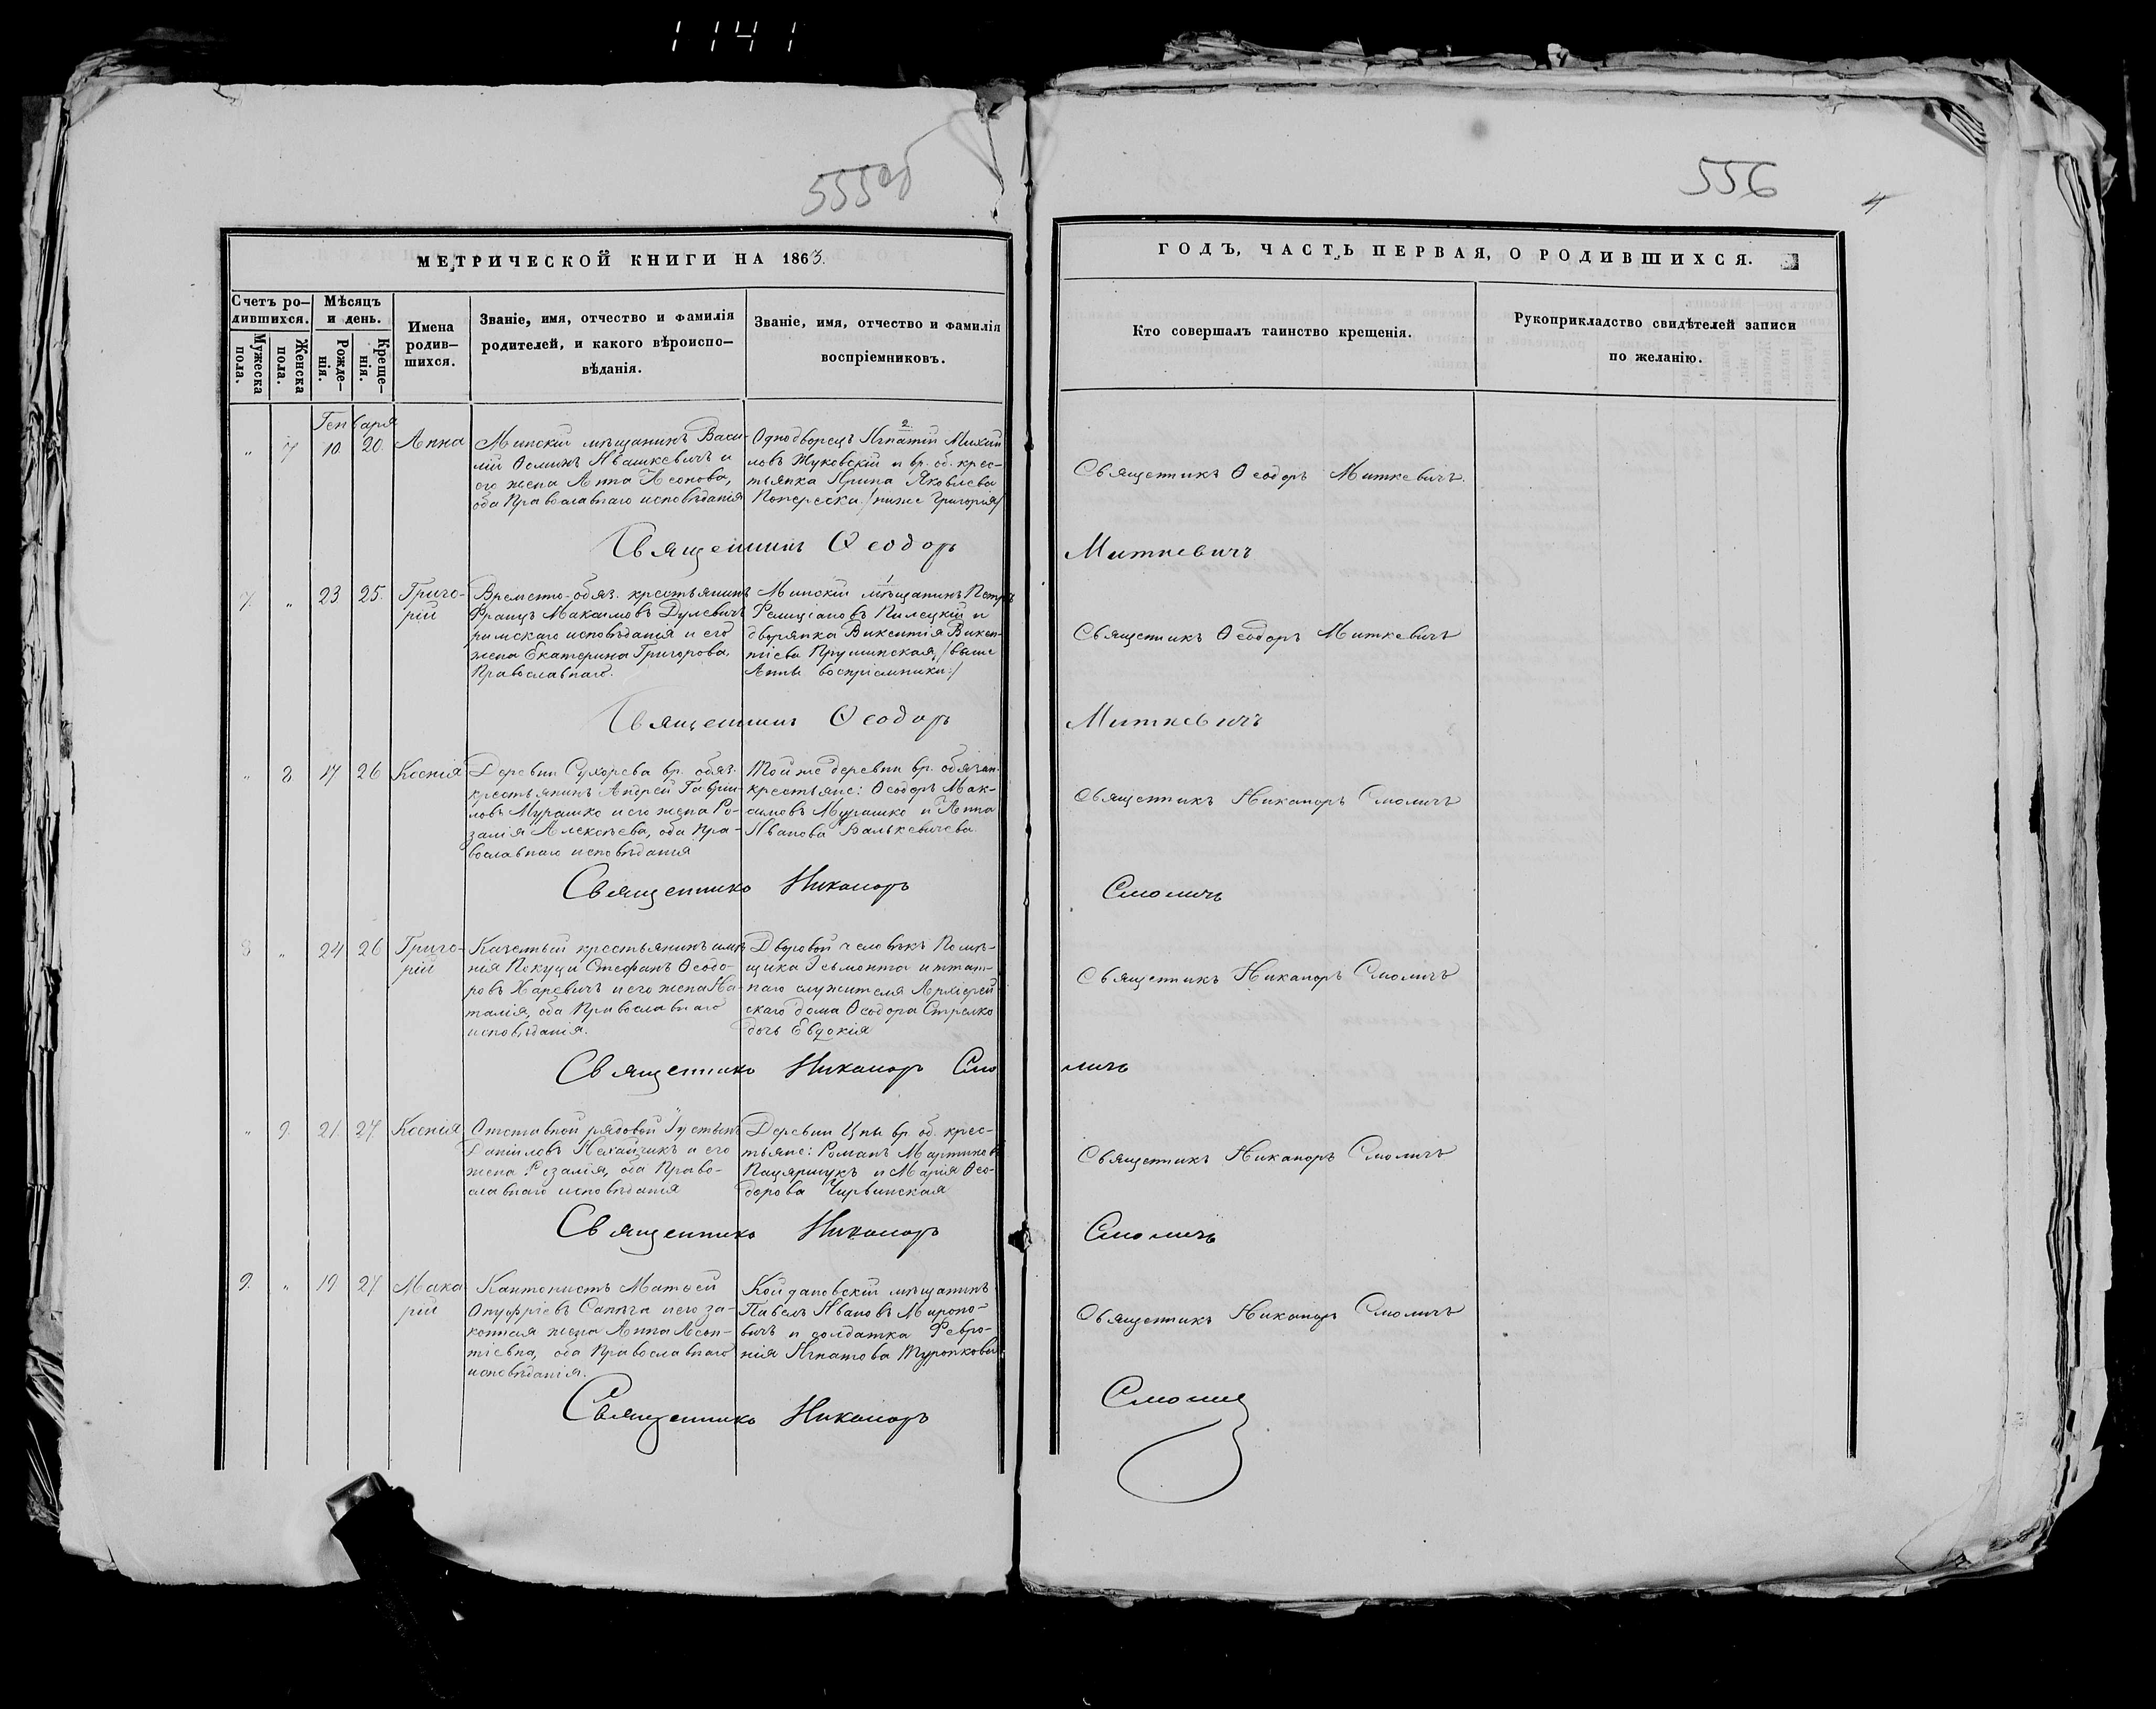 1141
555 об
556
4
МЕТРИЧЕСКОЙ КНИГИ НА 1863.
ГОДЪ, ЧАСТЬ ПЕРВАЯ, О РОДИВШИХСЯ.
Счетъ ро-
дившихся.
Мужеска
пола.
Женска
пола.
Мѣсяцъ
и день.
Рожде-
нія.
Креще-
нія.
Имена
родив-
шихся.
Званіе, имя, отчество и фамилія
родителей, и какого вѣроиспо-
вѣданія.
Званіе, имя, отчество и фамилія
воспріемниковъ.
Кто совершалъ таинство крещенія.
Рукоприкладство свидѣтелей записи
по желанію.
Генваря
" 7 10. 20. Анна
Минскій мѣщанинъ Васи-
лій Осиповъ Ивашкевичъ и
его жена Анна Леонова,
оба Православнаго исповѣданія
2
Однодворецъ Игнатій Михай
ловъ Жуковскій и вр. об. крес-
тьянка Ирина Яковлева
/ниже Григорія/
Священникъ Ѳеодоръ Миткевичъ.
Священникъ Ѳеодоръ Миткевичъ
7. " 23 25. Григо-
рій
Временно-обяз. крестьянинъ
Францъ Максимовъ Дулевичъ
римскаго исповѣданія и его
жена Екатерина Григорова,
Православнаго.
1
Минскій мѣщанинъ Петръ
Фелиціановъ Пилецкій и
дворянка Викентія Викен-
тіева Прушинская, /выше
Анны воспріемники:/
Священникъ Ѳеодоръ Миткевичъ
Священникъ Ѳеодоръ Миткевичъ
" 8 17 26 Ксенія
Деревни Сухорева вр. обяз.
крестьянинъ Андрей Гаврии-
ловъ Мурашко и его жена Ро-
залія Алексѣева, оба Пра-
вославнаго исповѣданія
Той же деревни вр. обязан.
крестьяне: Ѳеодоръ Мак-
симовъ Мурашко и Анна
Иванова Валькевичева.
Священникъ Никаноръ Смоличъ
Священникъ Никаноръ Смоличъ
8 " 24 26 Григо-
рій
Казенный крестьянинъ имѣ-
нія Стефанъ Ѳеодо-
ровъ Харевичъ и его жена На-
талія, оба Православнаго
исповѣданія.
Дворовой человѣкъ Помѣ-
щика и штат-
наго служителя Архіерей-
скаго дома Ѳеодора Стрелко
дочь Евдокія
Священникъ Никаноръ Смоличъ
Священникъ Никаноръ Смоличъ
" 9. 21. 27. Ксенія
Отставной рядовой Іустинъ
Даніиловъ Нехайчикъ и его
жена Розалія, оба Право-
славнаго исповѣданія
Деревни Цны вр. об. крес-
тьяне: Романъ Мартиновъ
и Марія Ѳео-
дорова Чирвинская
Священникъ Никаноръ Смоличъ
Священникъ Никаноръ Смоличъ
9. " 19 27 Мака
рій
Кантонистъ Матѳей
Онуфріевъ Сапѣга и его за-
конная жена Анна Леон-
тіевна, оба Православнаго
исповѣданія.
Койдановскій мѣщанинъ
Павелъ Ивановъ Мироно-
вичъ и солдатка Февро-
нія Игнатова
Священникъ Никаноръ Смоличъ
Священникъ Никаноръ Смоличъ